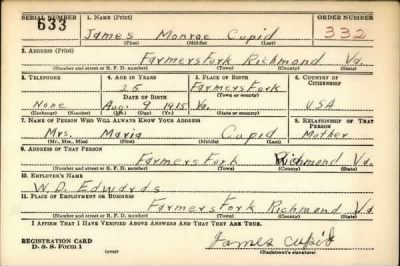 SERIAL NUMBER 1. NAME (Print) ORDER NUMBER
633 James Monroe Cupid 332
(First) (Middle) (Last)
2. ADDRESS (Print)
Farmers Fork Richmond Va.
(Number and street or R. F. D. number) (Town) (County) (State)
3. TELEPHONE 4. AGE IN YEARS 5. PLACE OF BIRTH 6. COUNTRY OF CITIZENSHIP
25 Farmers Fork
DATE OF BIRTH (Town or county)
None Aug. 9 1915 Va. USA
(Exchange) (Number) (Mo.) (Day) (Yr.) (State or country)
7. NAME OF PERSON WHO WILL ALWAYS KNOW YOUR ADDRESS 8. RELATIONSHIP OF THAT PERSON
Mrs. Maria Cupid Mother
(Mr., Mrs., Miss) (First) (Middle) (Last)
9. ADDRESS OF THAT PERSON
Farmers Fork Richmond Va
(Number and street or R. F. D. number) (Town) (County) (State)
10. EMPLOYER'S NAME
W. D. Edwards
11. PLACE OF EMPLOYMENT OR BUSINESS
Farmers Fork Richmond Va
(Number and street or R. F. D. number) (Town) (County) (State)
I AFFIRM THAT I HAVE VERIFIED ABOVE ANSWERS AND THAT THEY ARE TRUE.
REGISTRATION CARD James Cupid
D. S. S. Form 1 (over) (Registrant's signature)